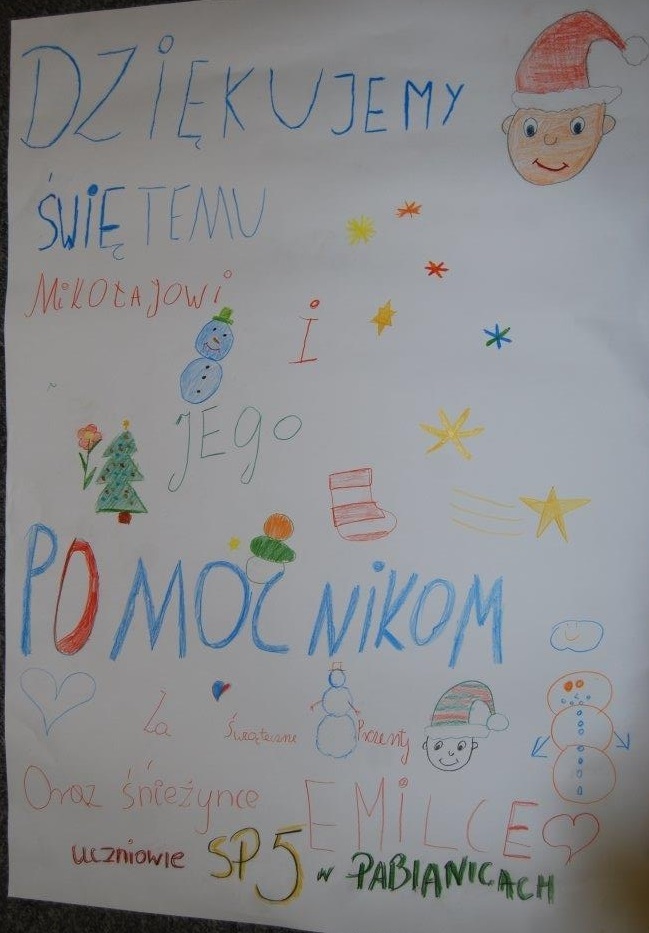 DZIĘKUJEMY
ŚWIĘTEMU
MiKOŁAJOWi
i
JEGO
POMOCNiKOM
Za Świąteczne Prezenty
Oraz śnieżynce EMiLCE
uczniowie SP5 w PABIANICACH